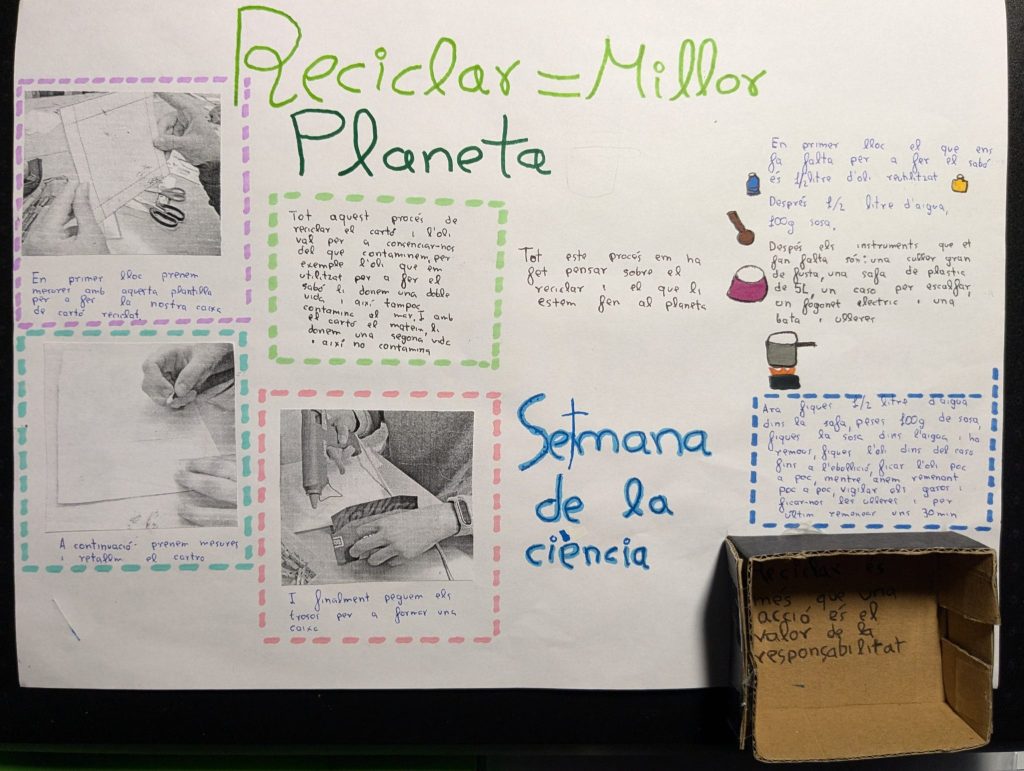 Reciclar = Millor
Planeta
En primer lloc prenem
mesures amb aquesta plantilla
per a fer la nostra caixa
de cartó reciclat
A continuació prenem mesures
i retallem el cartro
Tot aquest procés de
reciclar el cartó i l'oli
val per a conscenciar-nos
del que contaminem, per
exemple l'oli que em
utilitzat per a fer el
sabó li donem una doble
vida i així tampoc
contamina al mar. I amb
el cartó el mateix, li
donem una segona vida
i així no contamina
I finalment peguem els
trosos per a formar una
caixa
Tot este procés em ha
fet pensar sobre el
reciclar i el que li
estem fen al planeta
Setmana
de la
ciència
En primer lloc el que ens
fa falta per a fer el sabó
és 1/2 litre d'oli reutilitzat
Després 1/2 litre d'aigua,
100g sosa.
Despés els instruments que et
fan falta són: una culler gran
de fusta, una safa de plastic
de 5L, un caso per escalfar,
un fogonet electric i una
bata i ulleres
Ara fiques 1/2 litre d'aigua
dins la safa, peses 100g de sosa,
fiques la sosa dins l'aigua i ho
remous, fiques l'oli dins del caso
fins a l'ebollició, ficar l'oli poc
a poc, mentre anem remenant
poc a poc, vigilar els gasos i
ficar-nos les ulleres i per
ultim remenear uns 30min
Reciclar es
més que una
acció és el
valor de la
responçabilitat